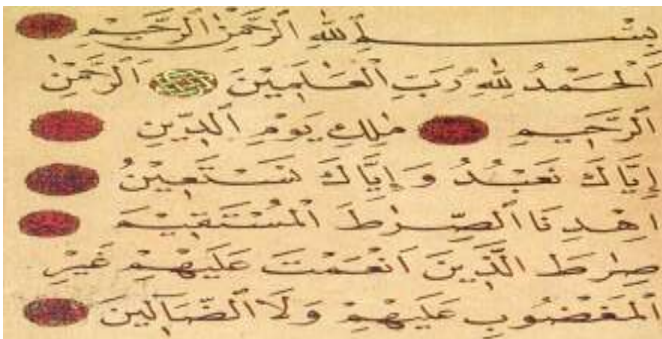 بِسْمِ اللهِ الرَّحْمٰنِ الرَّحِيمِ
اَلْحَمْدُ لِلّٰهِ رَبِّ الْعَالَمِيْنَ اَلرَّحْمٰنِ
الرَّحِيمِ مٰلِكِ يَوْمِ الدِّينِ
اِيَّاكَ نَعْبُدُ وَاِيَّاكَ نَسْتَعِيْنُ
اِهْدِنَا الصِّرَاطَ الْمُسْتَقِيْمَ
صِرَاطَ الَّذِينَ اَنْعَمْتَ عَلَيْهِمْ غَيْرِ
الْمَغْضُوبِ عَلَيْهِمْ وَلَا الضَّالِّينَ